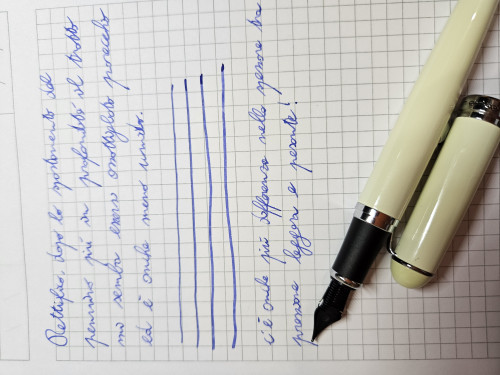 Rettifico, dopo lo spostamento del
pennino più in profondità il tratto
mi sembra essersi assottigliato parecchio
ed è anche meno umido.
c'è anche più differenza nello spessore tra
pressione leggera e pesante!